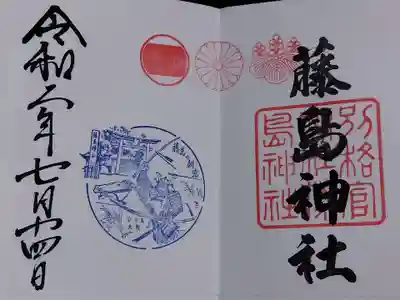 藤島神社
別格官
幣社藤
島神社
令和六年七月十四日